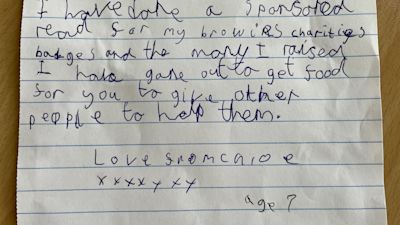 I have done a sponsored
read for my browiRS charities
badges and the mony I raised
I have gone out to get food
for you to give other
people to help them.
Love
xxxxyxy
age 7